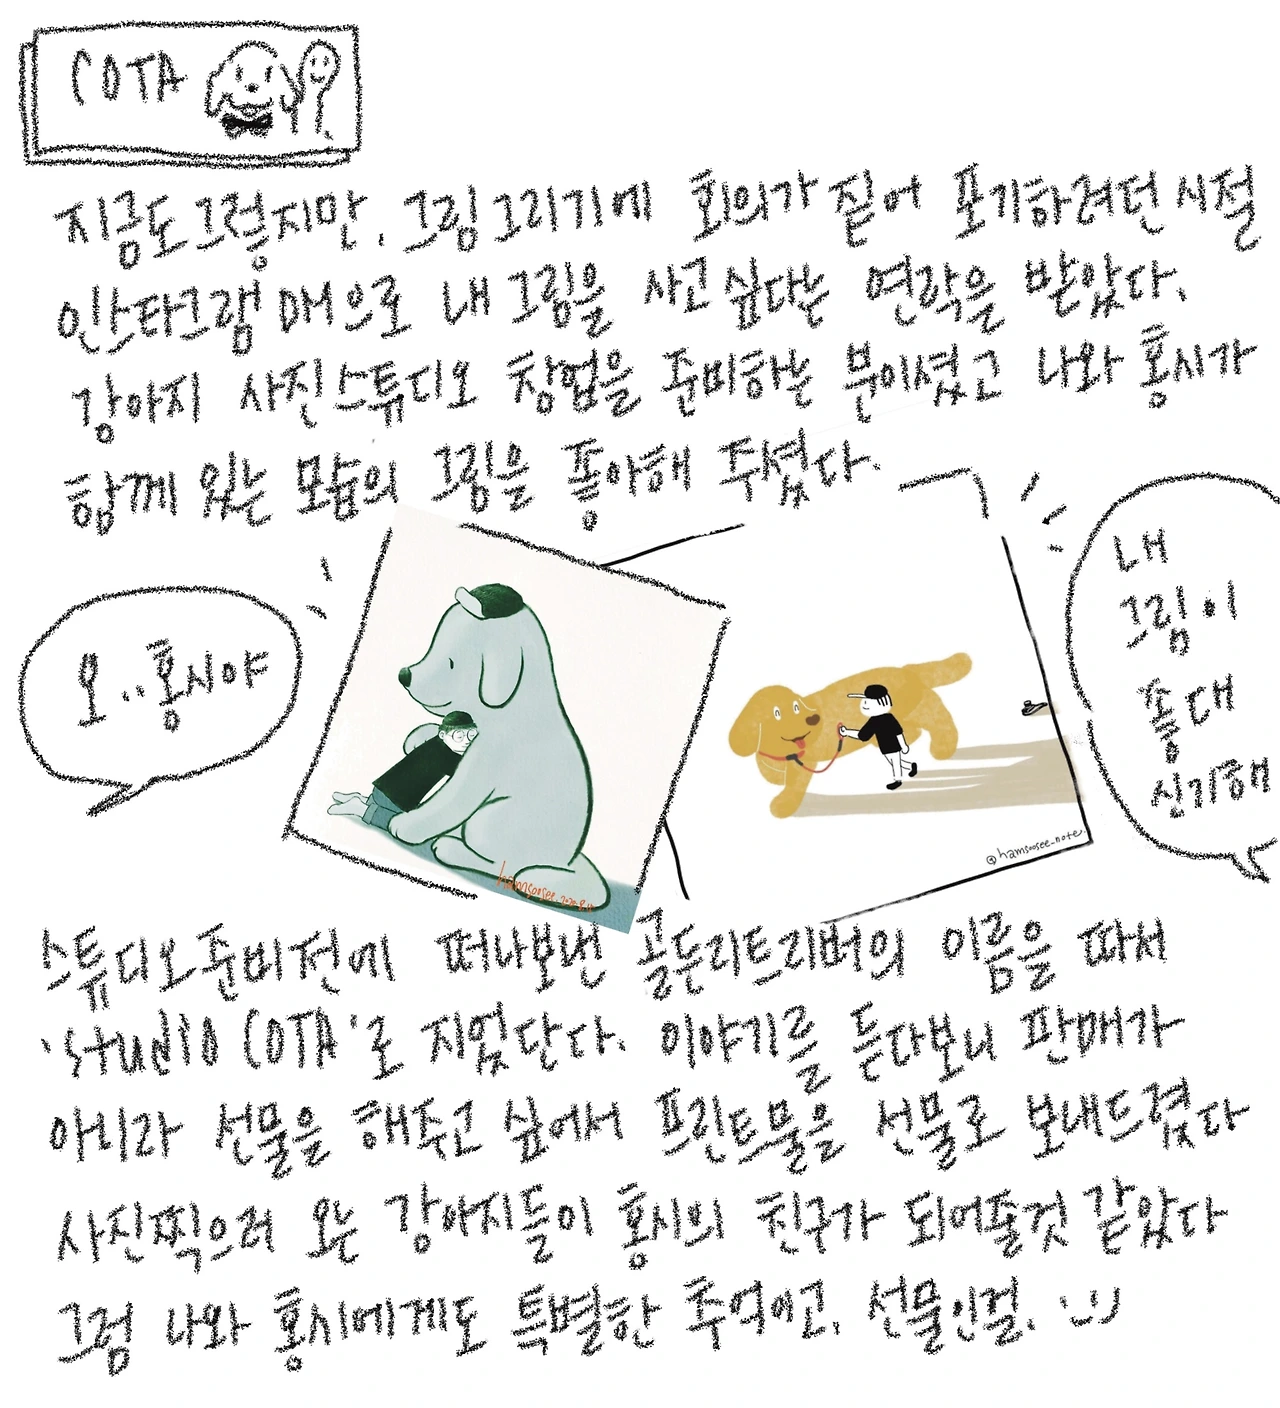 COTA
지금도 그렇지만, 그림 그리기에 회의가 짙어 포기하려던 시절
인스타그램 DM으로 내 그림을 사고 싶다는 연락을 받았다.
강아지 사진스튜디오 창업을 준비하는 분이셨고 나와 홍시가
함께 있는 모습의 그림을 좋아해 주셨다.
오..홍시야
내
그림이
좋대
신기해
hamsoosee
@hamsoosee_note.
스튜디오 준비 전에 떠나보낸 골든리트리버의 이름을 따서
'studio COTA'로 지었단다. 이야기를 듣다보니 판매가
아니라 선물을 해주고 싶어서 프린트물을 선물로 보내드렸다
사진찍으러 오는 강아지들이 홍시의 친구가 되어줄것 같았다
그럼 나와 홍시에게도 특별한 추억이고, 선물인걸. :)